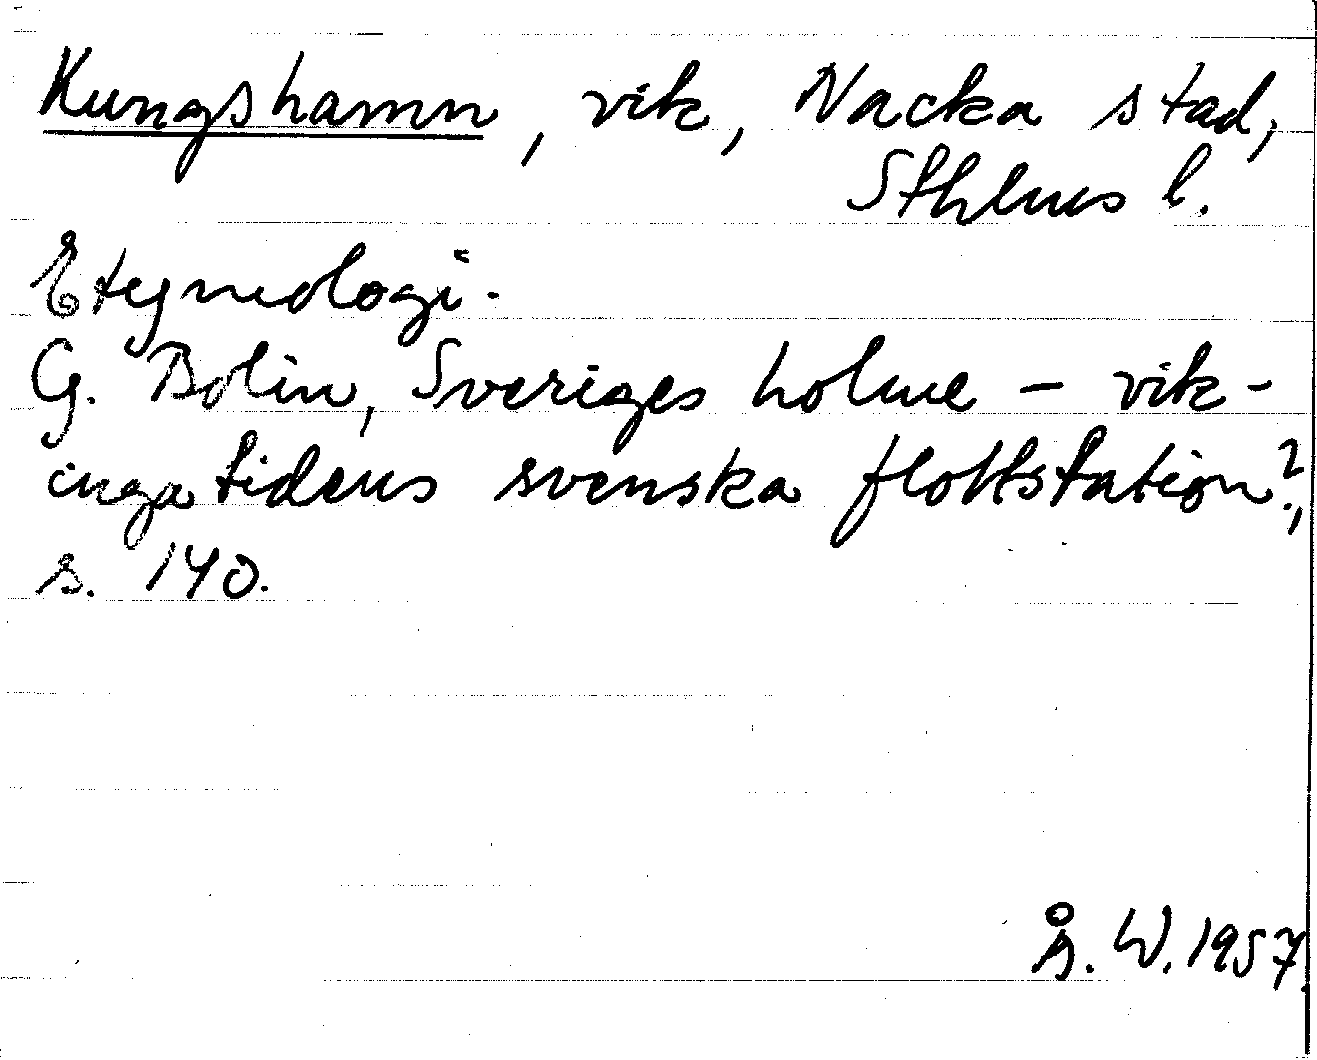 Kungshamn, vik, Nacka stad,
Sthlms l.
Etymologi.
G. Bolin, Sveriges holme – vik-
ingatidens svenska flottstation?,
s. 140.
Å. W. 1957.